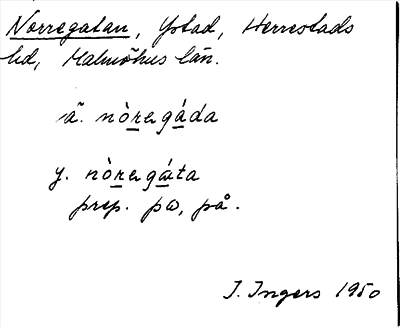 Norregatan, Ystad, Herrestads
hd, Malmöhus län.
ä. nòrɐgáda
y. nòrɐgáta
prep. pɷ, på.
I. Ingers 1950